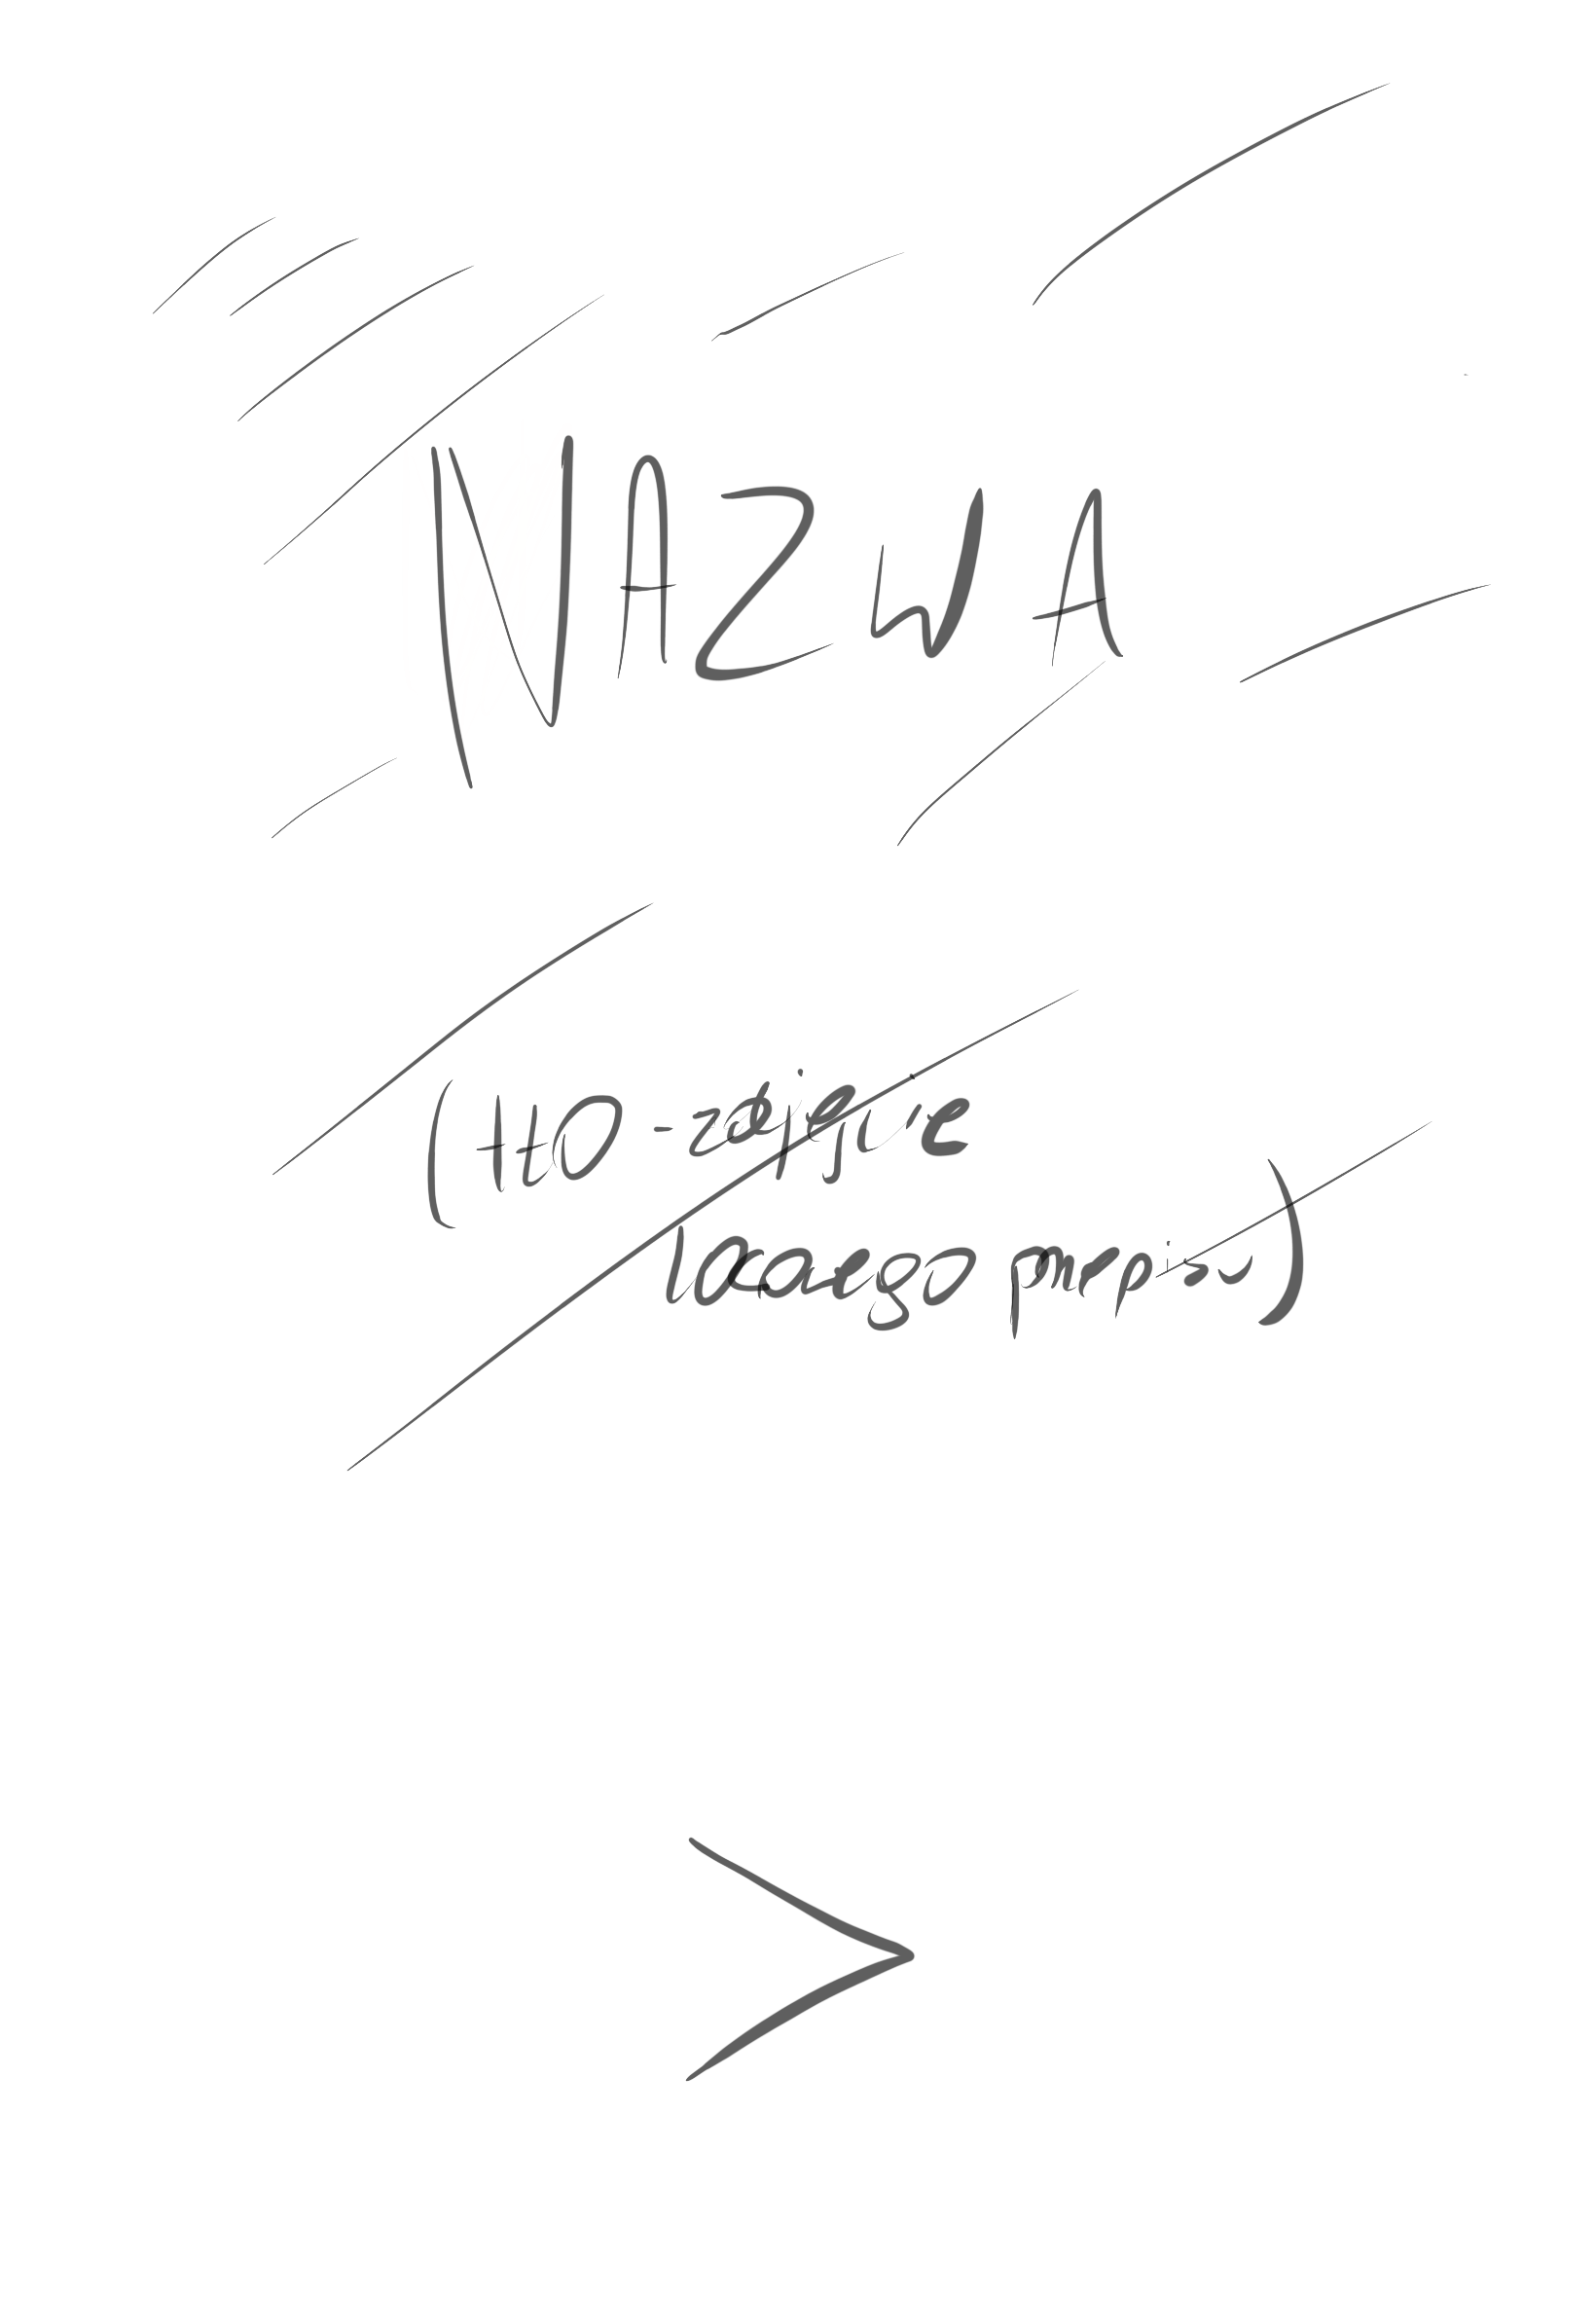 NAZWA
(tło - zdjęcie
losowego przepisu)
>